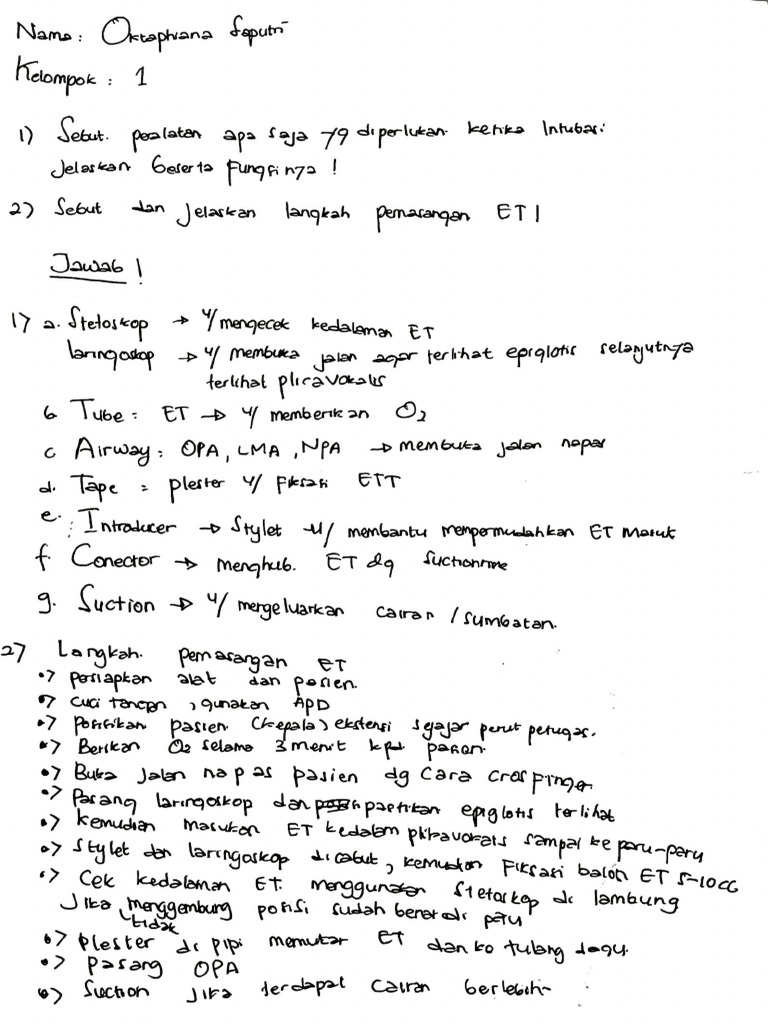 Nama : Oktaphiana Saputri
Kelompok : 1
1) Sebut. pealatan apa saja yg diperlukan ketika Intubasi
Jelaskan beserta fungsinya !
2) Sebut dan Jelaskan langkah pemasangan ET !
Jawab !
1) a. Stetoskop → u/ mengecek kedalaman ET
laringoskop → u/ membuka jalan agar terlihat epiglotis selanjutnya
terlihat plicavokalis
b Tube : ET → u/ memberikan O2
c Airway : OPA, LMA, NPA → membuka jalan napas
d. Tape = plester u/ fiksasi ETT
e. : Introducer → Stylet → u/ membantu mempermudahkan ET masuk
f. Conector → menghub. ET dg suction
g. Suction → u/ mengeluarkan cairan / sumbatan.
2) Langkah. pemasangan ET
•) persiapkan alat dan pasien.
•) cuci tangan , gunakan APD
•) posisikan pasien (kepala) ekstensi sejajar perut petugas.
•) Berikan O2 selama 3 menit kpd pasien.
•) Buka Jalan napas pasien dg cara crosfinger
•) Pasang laringoskop dan pastikan epiglotis terlihat
•) kemudian masukan ET kedalam plicavokalis sampai ke paru-paru
•) Stylet dan laringoskop dicabut, kemudian Fiksasi balon ET 5-10cc
•) Cek kedalaman ET. menggunakan stetoskop di lambung
Jika tidak menggembung posisi sudah benar di paru
•) plester di pipi memutar ET dan ke tulang dagu.
•) pasang OPA
•) Suction Jika terdapat cairan berlebih-